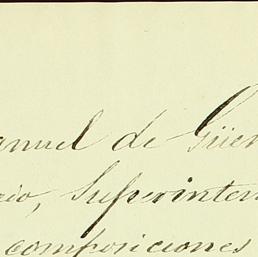 anuel de Güem
cio, Superinten
composiciones